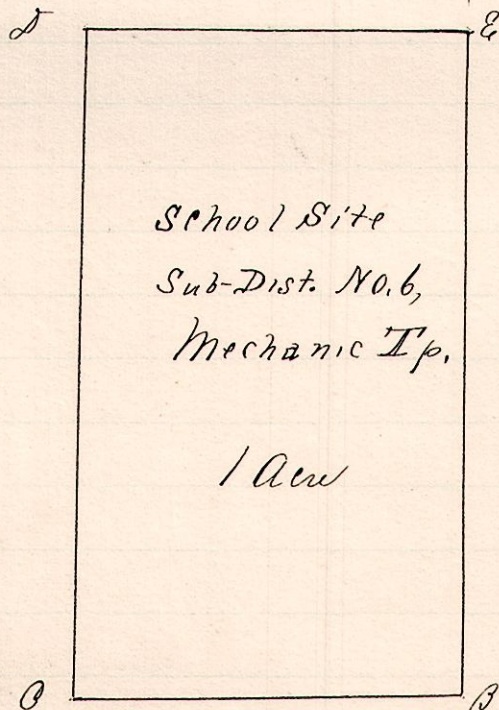 D E
School Site
Sub-Dist. No. 6,
Mechanic Tp.
1 Acre
C B